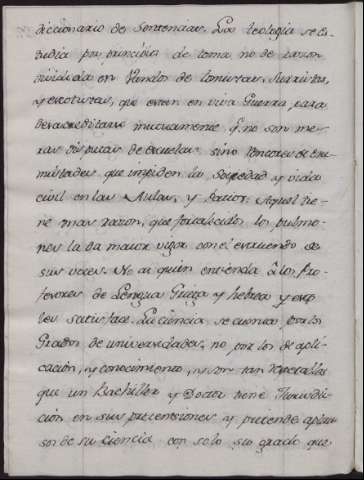 diccionario de Sentencias. La teologia se es
tudia por principios de toma no de razon
dividida en Vandos de tomistas, Suaristas,
y escotistas, que estan en viva Guerra para
desacreditarse mutuamente q.e no son me
ras disputas de escuelas, sino rencores de ene
mistades que impiden la Sociedad y vida
civil en las Aulas, y Patios. Aquel tie-
ne mas razon, que fortalecidos los pulmo-
nes la da maior vigor con el estruendo de
sus voces. No ai quien entienda â los Pro-
fesores de Lengua Griega y hebrea y
les satisface. La ciencia se cuenta por los
Grados de universidades, no por los de apli-
cación, y conocimiento, y son tan
que un Bachiller y Doctor tiene Jurisdi-
ción en sus pretensiones y pretende
sor de su ciencia con solo su grado que